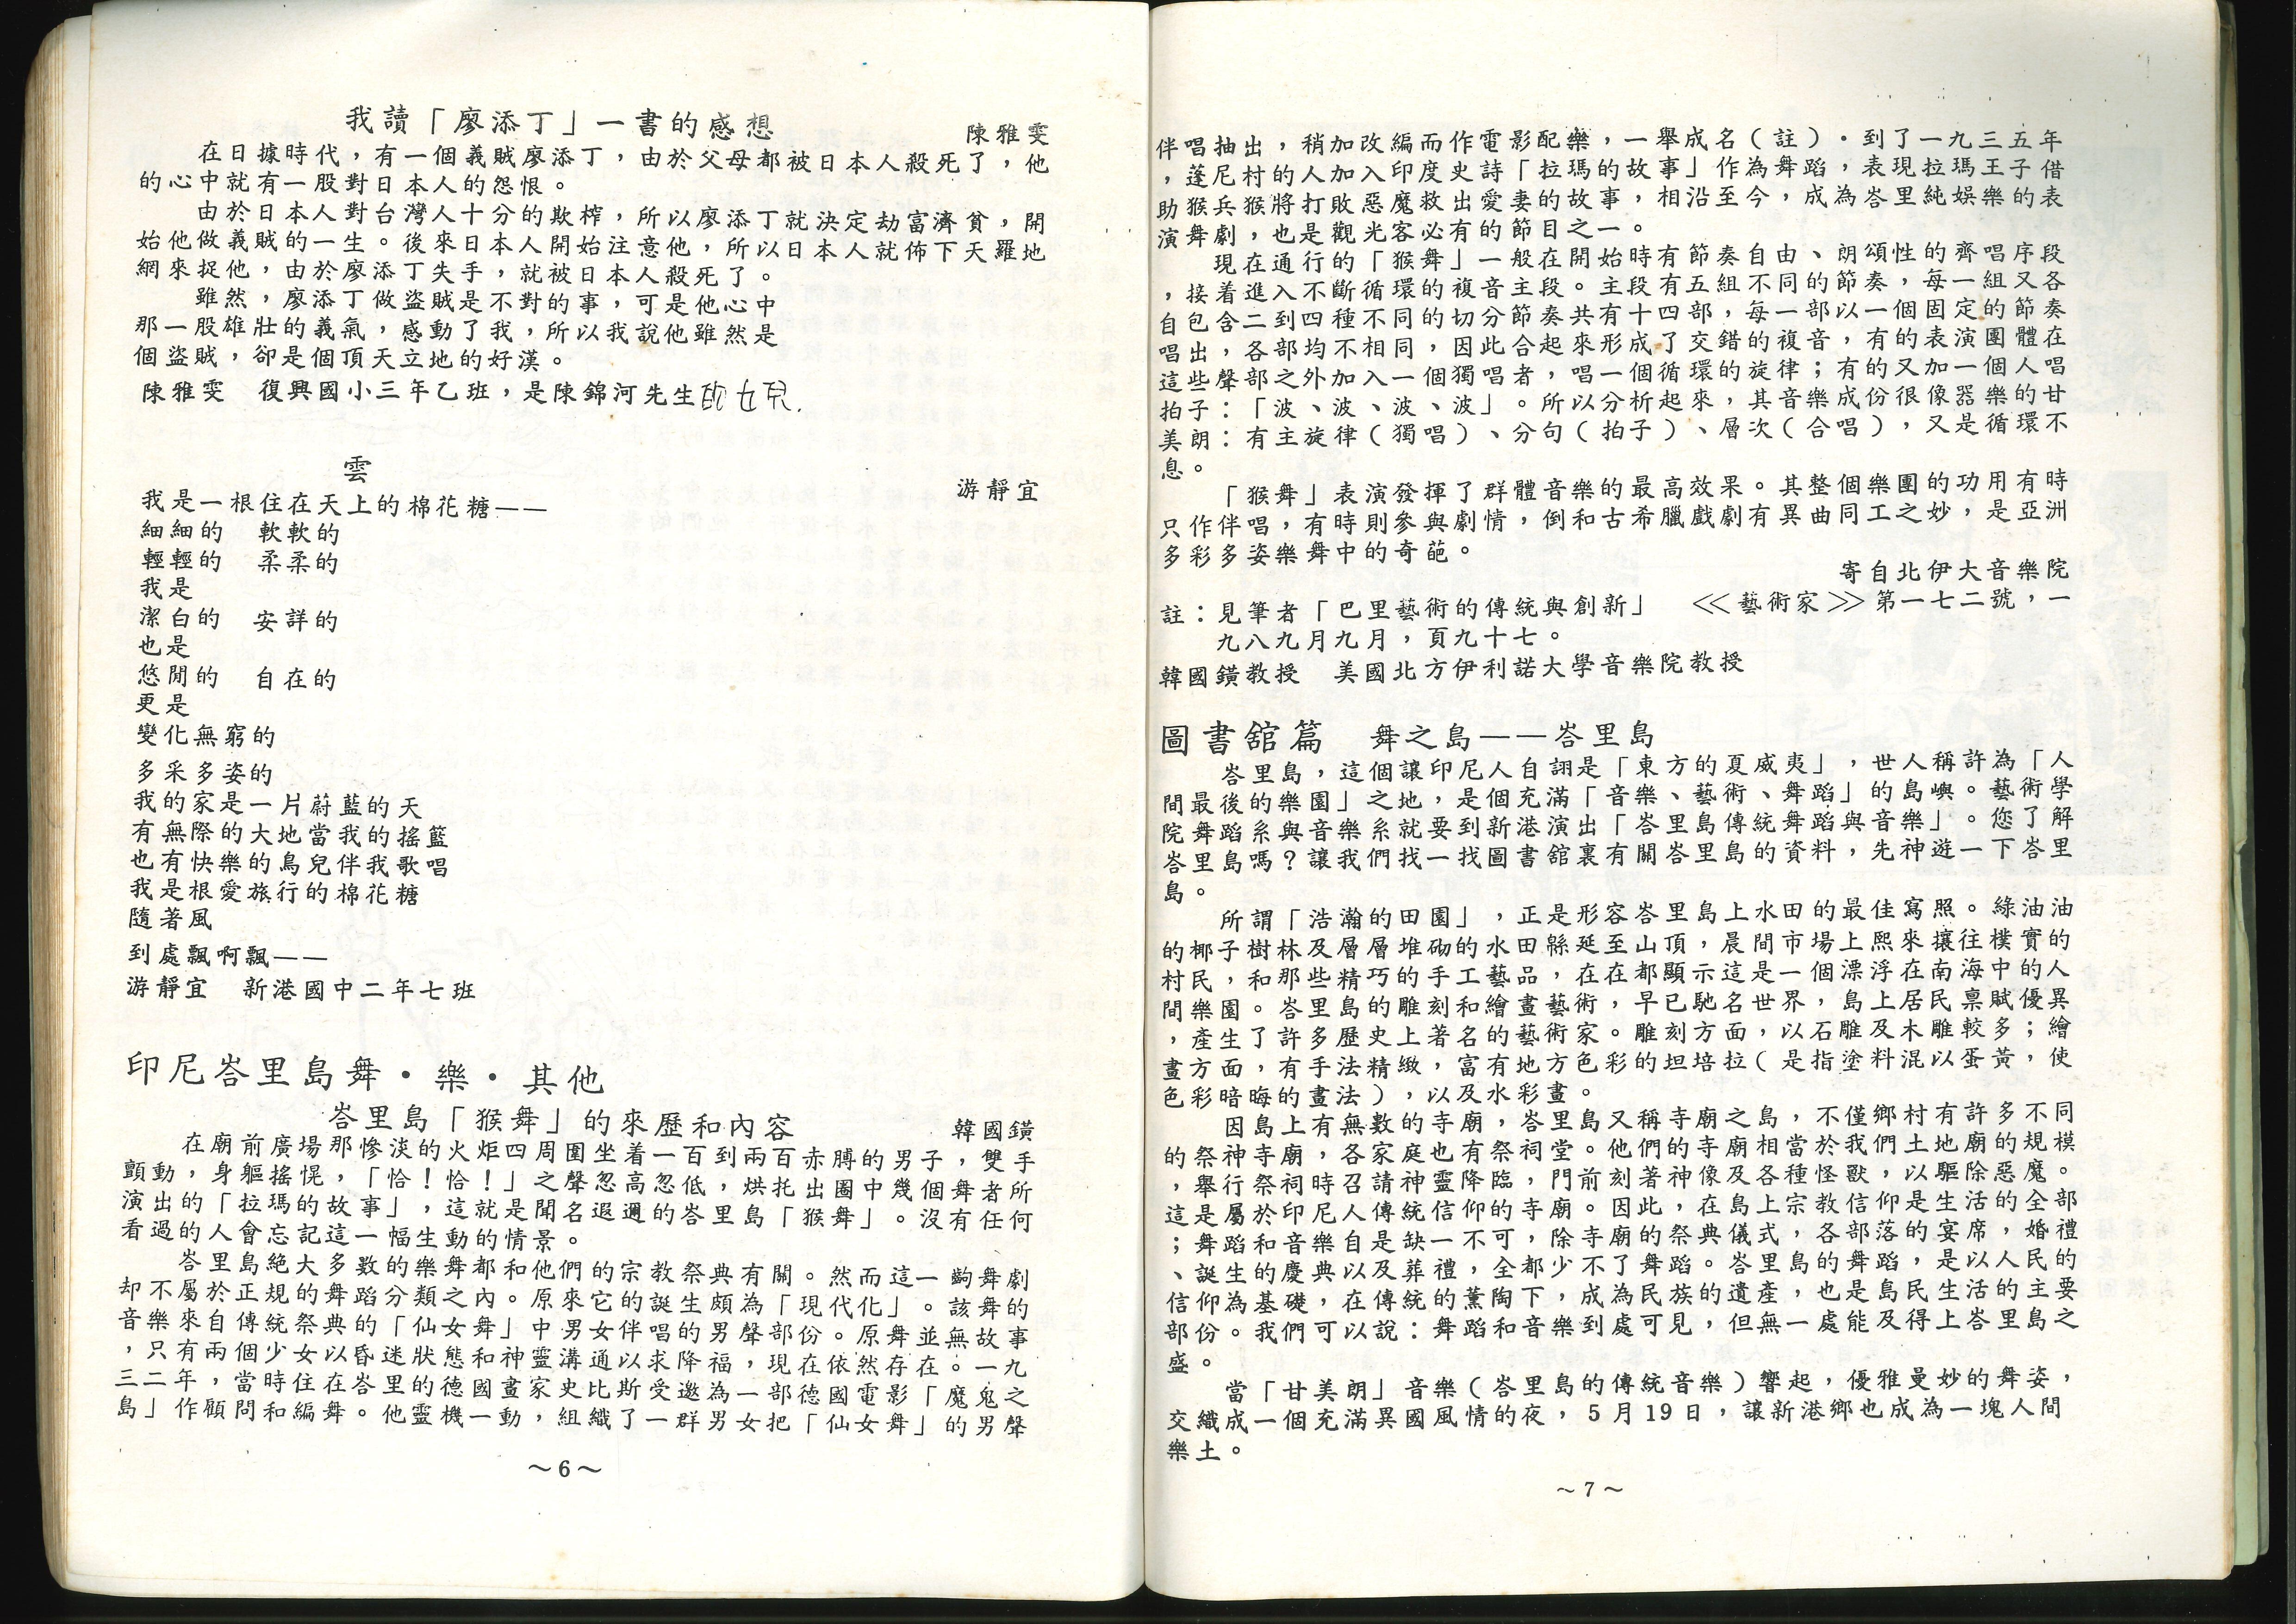 我讀「廖添丁」一書的感想
陳雅雯
在日據時代，有一個義賊廖添丁，由於父母都被日本人殺死了，他
的心中就有一股對日本人的怨恨。
由於日本人對台灣人十分的欺榨，所以廖添丁就決定劫富濟貧，開
始他做義賊的一生。後來日本人開始注意他，所以日本人就佈下天羅地
網來捉他，由於廖添丁失手，就被日本人殺死了。
雖然，廖添丁做盜賊是不對的事，可是他心中
那一股雄壯的義氣，感動了我，所以我說他雖然是
個盜賊，卻是個頂天立地的好漢。
陳雅雯　復興國小三年乙班，是陳錦河先生的女兒.
雲
游靜宜
我是一根住在天上的棉花糖——
細細的　軟軟的
輕輕的　柔柔的
我是
潔白的　安詳的
也是
悠閒的　自在的
更是
變化無窮的
多采多姿的
我的家是一片蔚藍的天
有無際的大地當我的搖籃
也有快樂的鳥兒伴我歌唱
我是根愛旅行的棉花糖
隨著風
到處飄啊飄——
游靜宜　新港國中二年七班
印尼峇里島舞・樂・其他
峇里島「猴舞」的來歷和內容
韓國鐄
在廟前廣場那慘淡的火炬四周圍坐着一百到兩百赤膊的男子，雙手
顫動，身軀搖愰，「恰！恰！」之聲忽高忽低，烘托出圈中幾個舞者所
演出的「拉瑪的故事」，這就是聞名遐邇的峇里島「猴舞」。沒有任何
看過的人會忘記這一幅生動的情景。
峇里島絕大多數的樂舞都和他們的宗教祭典有關。然而這一齣舞劇
却不屬於正規的舞蹈分類之內。原來它的誕生頗為「現代化」。該舞的
音樂來自傳統祭典的「仙女舞」中男女伴唱的男聲部份。原舞並無故事
，只有兩個少女以昏迷狀態和神靈溝通以求降福，現在依然存在。一九
三二年，當時住在峇里的德國畫家史比斯受邀為一部德國電影「魔鬼之
島」作顧問和編舞。他靈機一動，組織了一群男女把「仙女舞」的男聲
～6～
伴唱抽出，稍加改編而作電影配樂，一舉成名（註）．到了一九三五年
，蓬尼村的人加入印度史詩「拉瑪的故事」作為舞蹈，表現拉瑪王子借
助猴兵猴將打敗惡魔救出愛妻的故事，相沿至今，成為峇里純娛樂的表
演舞劇，也是觀光客必有的節目之一。
現在通行的「猴舞」一般在開始時有節奏自由、朗頌性的齊唱序段
，接着進入不斷循環的複音主段。主段有五組不同的節奏，每一組又各
自包含二到四種不同的切分節奏共有十四部，每一部以一個固定的節奏
唱出，各部均不相同，因此合起來形成了交錯的複音，有的表演團體在
這些聲部之外加入一個獨唱者，唱一個循環的旋律；有的又加一個人唱
拍子：「波、波、波、波」。所以分析起來，其音樂成份很像器樂的甘
美朗：有主旋律（獨唱）、分句（拍子）、層次（合唱），又是循環不
息。
「猴舞」表演發揮了群體音樂的最高效果。其整個樂團的功用有時
只作伴唱，有時則參與劇情，倒和古希臘戲劇有異曲同工之妙，是亞洲
多彩多姿樂舞中的奇葩。
寄自北伊大音樂院
註：見筆者「巴里藝術的傳統與創新」　≪藝術家≫第一七二號，一
九八九月九月，頁九十七。
韓國鐄教授　美國北方伊利諾大學音樂院教授
圖書舘篇　舞之島——峇里島
峇里島，這個讓印尼人自詡是「東方的夏威夷」，世人稱許為「人
間最後的樂園」之地，是個充滿「音樂、藝術、舞蹈」的島嶼。藝術學
院舞蹈系與音樂系就要到新港演出「峇里島傳統舞蹈與音樂」。您了解
峇里島嗎？讓我們找一找圖書舘裏有關峇里島的資料，先神遊一下峇里
島。
所謂「浩瀚的田園」，正是形容峇里島上水田的最佳寫照。綠油油
的椰子樹林及層層堆砌的水田緜延至山頂，晨間市場上熙來攘往樸實的
村民，和那些精巧的手工藝品，在在都顯示這是一個漂浮在南海中的人
間樂園。峇里島的雕刻和繪畫藝術，早已馳名世界，島上居民稟賦優異
，產生了許多歷史上著名的藝術家。雕刻方面，以石雕及木雕較多；繪
畫方面，有手法精緻，富有地方色彩的坦培拉（是指塗料混以蛋黃，使
色彩暗晦的畫法），以及水彩畫。
因島上有無數的寺廟，峇里島又稱寺廟之島，不僅鄉村有許多不同
的祭神寺廟，各家庭也有祭祠堂。他們的寺廟相當於我們土地廟的規模
，舉行祭祠時召請神靈降臨，門前刻著神像及各種怪獸，以驅除惡魔。
這是屬於印尼人傳統信仰的寺廟。因此，在島上宗教信仰是生活的全部
；舞蹈和音樂自是缺一不可，除寺廟的祭典儀式，各部落的宴席，婚禮
、誕生的慶典以及葬禮，全都少不了舞蹈。峇里島的舞蹈，是以人民的
信仰為基礎，在傳統的薰陶下，成為民族的遺產，也是島民生活的主要
部份。我們可以說：舞蹈和音樂到處可見，但無一處能及得上峇里島之
盛。
當「甘美朗」音樂（峇里島的傳統音樂）響起，優雅曼妙的舞姿，
交織成一個充滿異國風情的夜，5月19日，讓新港鄉也成為一塊人間
樂土。
～7～